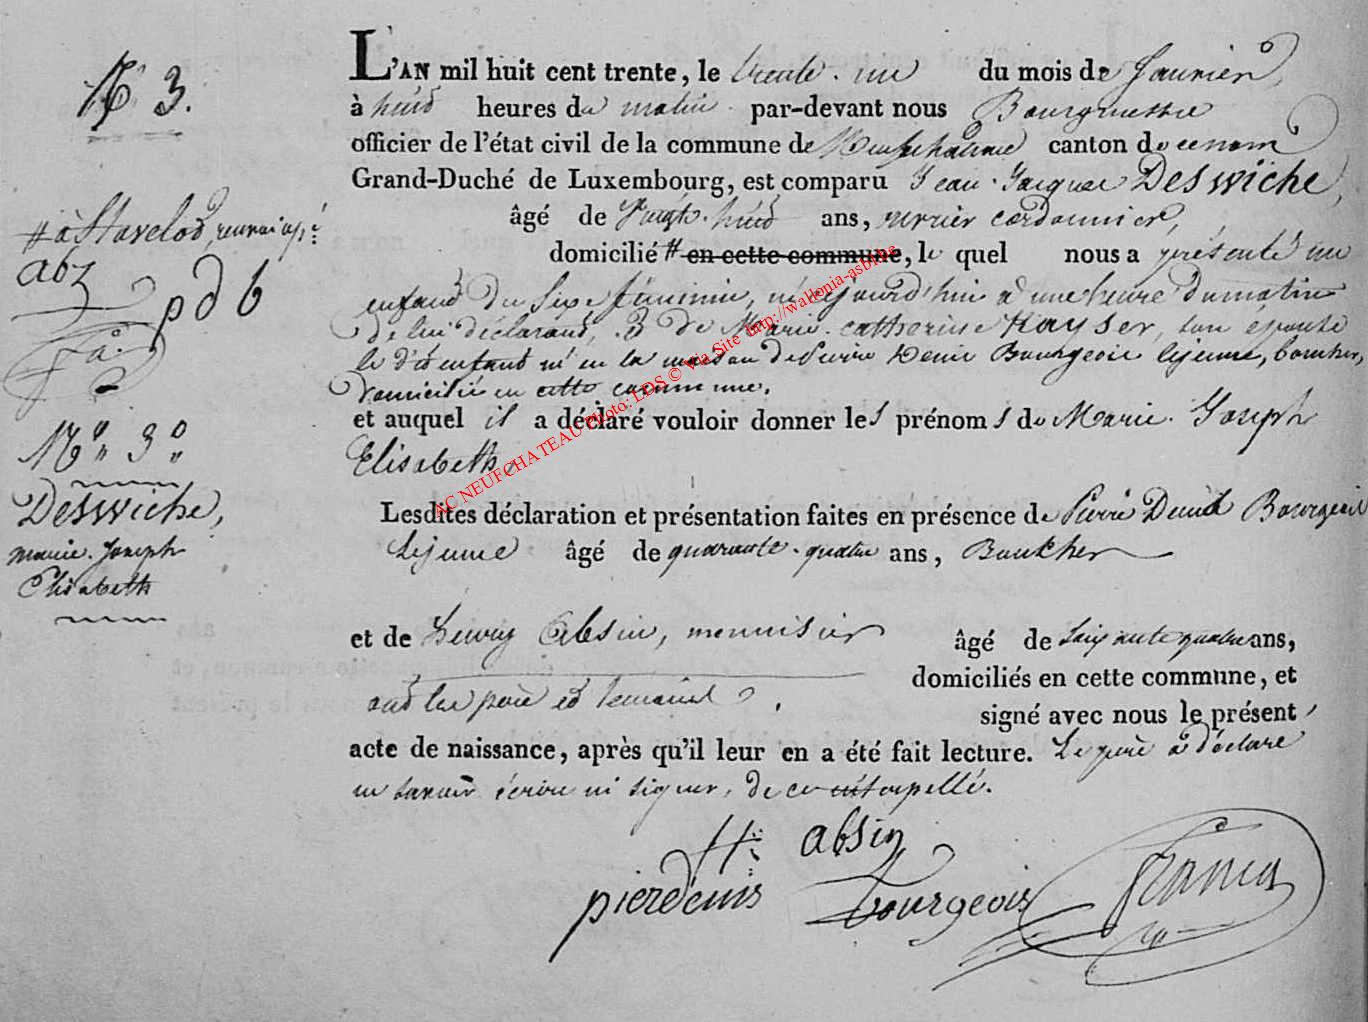 N° 3.
L'AN mil huit cent trente, le trente-un du mois de Janvier,
à huit heures du matin par-devant nous Bourguemestre
officier de l'état civil de la commune de Neufchateau canton de ce nom
Grand-Duché de Luxembourg, est comparu Jean-Jacques Deswiche,
âgé de vingt-huit ans, ouvrier cordonnier,
domicilié # en cette commune, le quel nous a présenté un
enfant du sexe féminin, né ajourd'hui à une heure du matin
de lui déclarant, & de Marie-catherine Kayser, son épouse
le d'it enfant né en la maison de Pierre Denis Bourgeois lejeune, boucher,
domicilié en cette commune.
et auquel il a déclaré vouloir donner les prénoms de Marie-Joseph
Elisabeth,
Lesdites déclaration et présentation faites en présence de Pierre Denis Bourgeois
Lejeune âgé de quarante-quatre ans, Boucher
et de Henry Absin, menuisier âgé de soixante quatre ans,
domiciliés en cette commune, et
ont les père et témoins signé avec nous le présent
acte de naissance, après qu'il leur en a été fait lecture. Le père a déclaré
ne savoir écrire ni signer, de ce interpellé.
# à Stavelot,
abz
p d b
N° 3°
Deswiche,
marie-Joseph
Elisabeth
H: absin
pierdenis bourgeois
AC NEUFCHATEAU Photo: LDS © Via Site http://wallonia-asbl.be